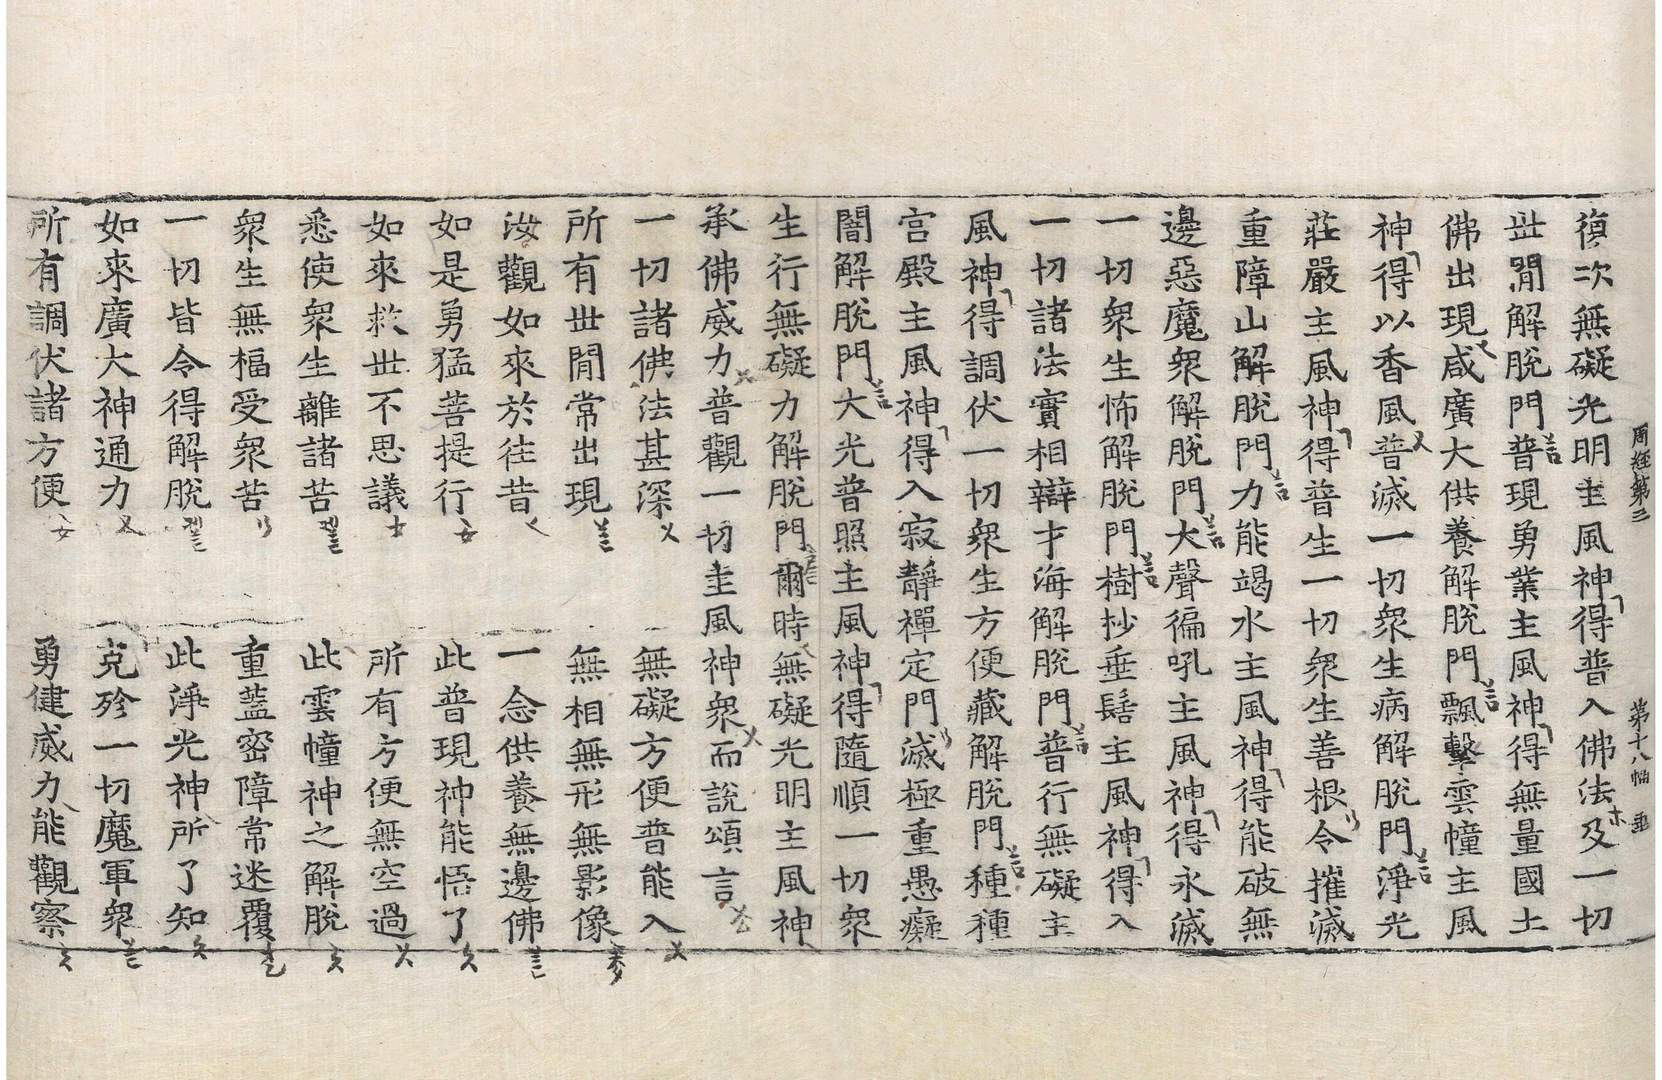 周経第三　第十八幅　垂
復次無礙光明主風神得普入佛法及一切
世閒解脫門普現勇業主風神得無量國土
佛出現咸廣大供養解脫門飄擊雲幢主風
神得以香風普滅一切衆生病解脫門淨光
莊嚴主風神得普生一切衆生善根令摧滅
重障山解脫門力能竭水主風神得能破無
邊惡魔衆解脫門大聲徧吼主風神得永滅
一切衆生怖解脫門樹抄垂髻主風神得入
一切諸法實相辯才海解脫門普行無礙主
風神得調伏一切衆生方便藏解脫門種種
宮殿主風神得入寂靜禪定門滅極重愚癡
闇解脫門大光普照主風神得隨順一切衆
生行無礙力解脫門爾時無礙光明主風神
承佛威力普觀一切主風神衆而說頌言
一切諸佛法甚深　無礙方便普能入
所有世閒常出現　無相無形無影像
汝觀如來於往昔　一念供養無邊佛
如是勇猛菩提行　此普現神能悟了
如來救世不思議　所有方便無空過
悉使衆生離諸苦　此雲幢神之解脫
衆生無福受衆苦　重蓋密障常迷覆
一切皆令得解脫　此淨光神所了知
如來廣大神通力　克殄一切魔軍衆
所有調伏諸方便　勇健威力能觀察